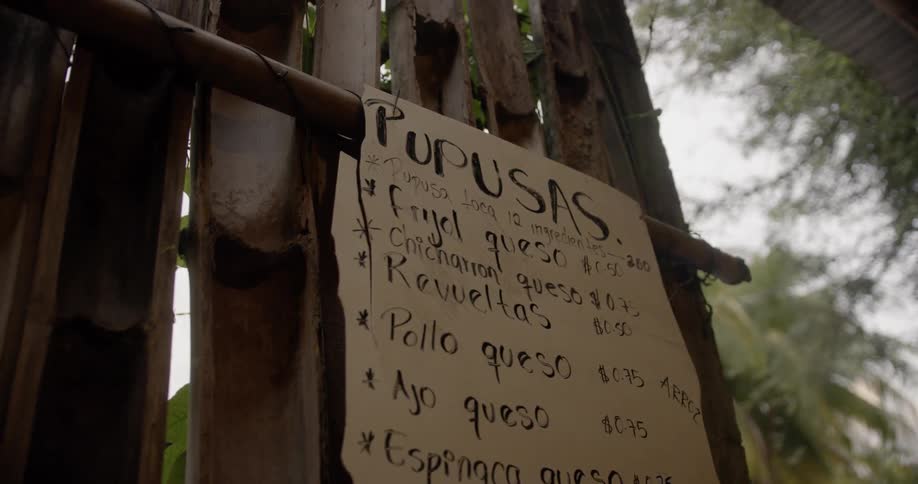 PUPUSAS.
* Pupusa loca 12 ingredientes
* Frijol queso $0.50
* Chicharron queso $0.75
* Revueltas $0.50
* Pollo queso $0.75 ARROZ
* Ajo queso $0.75
* Espinaca queso